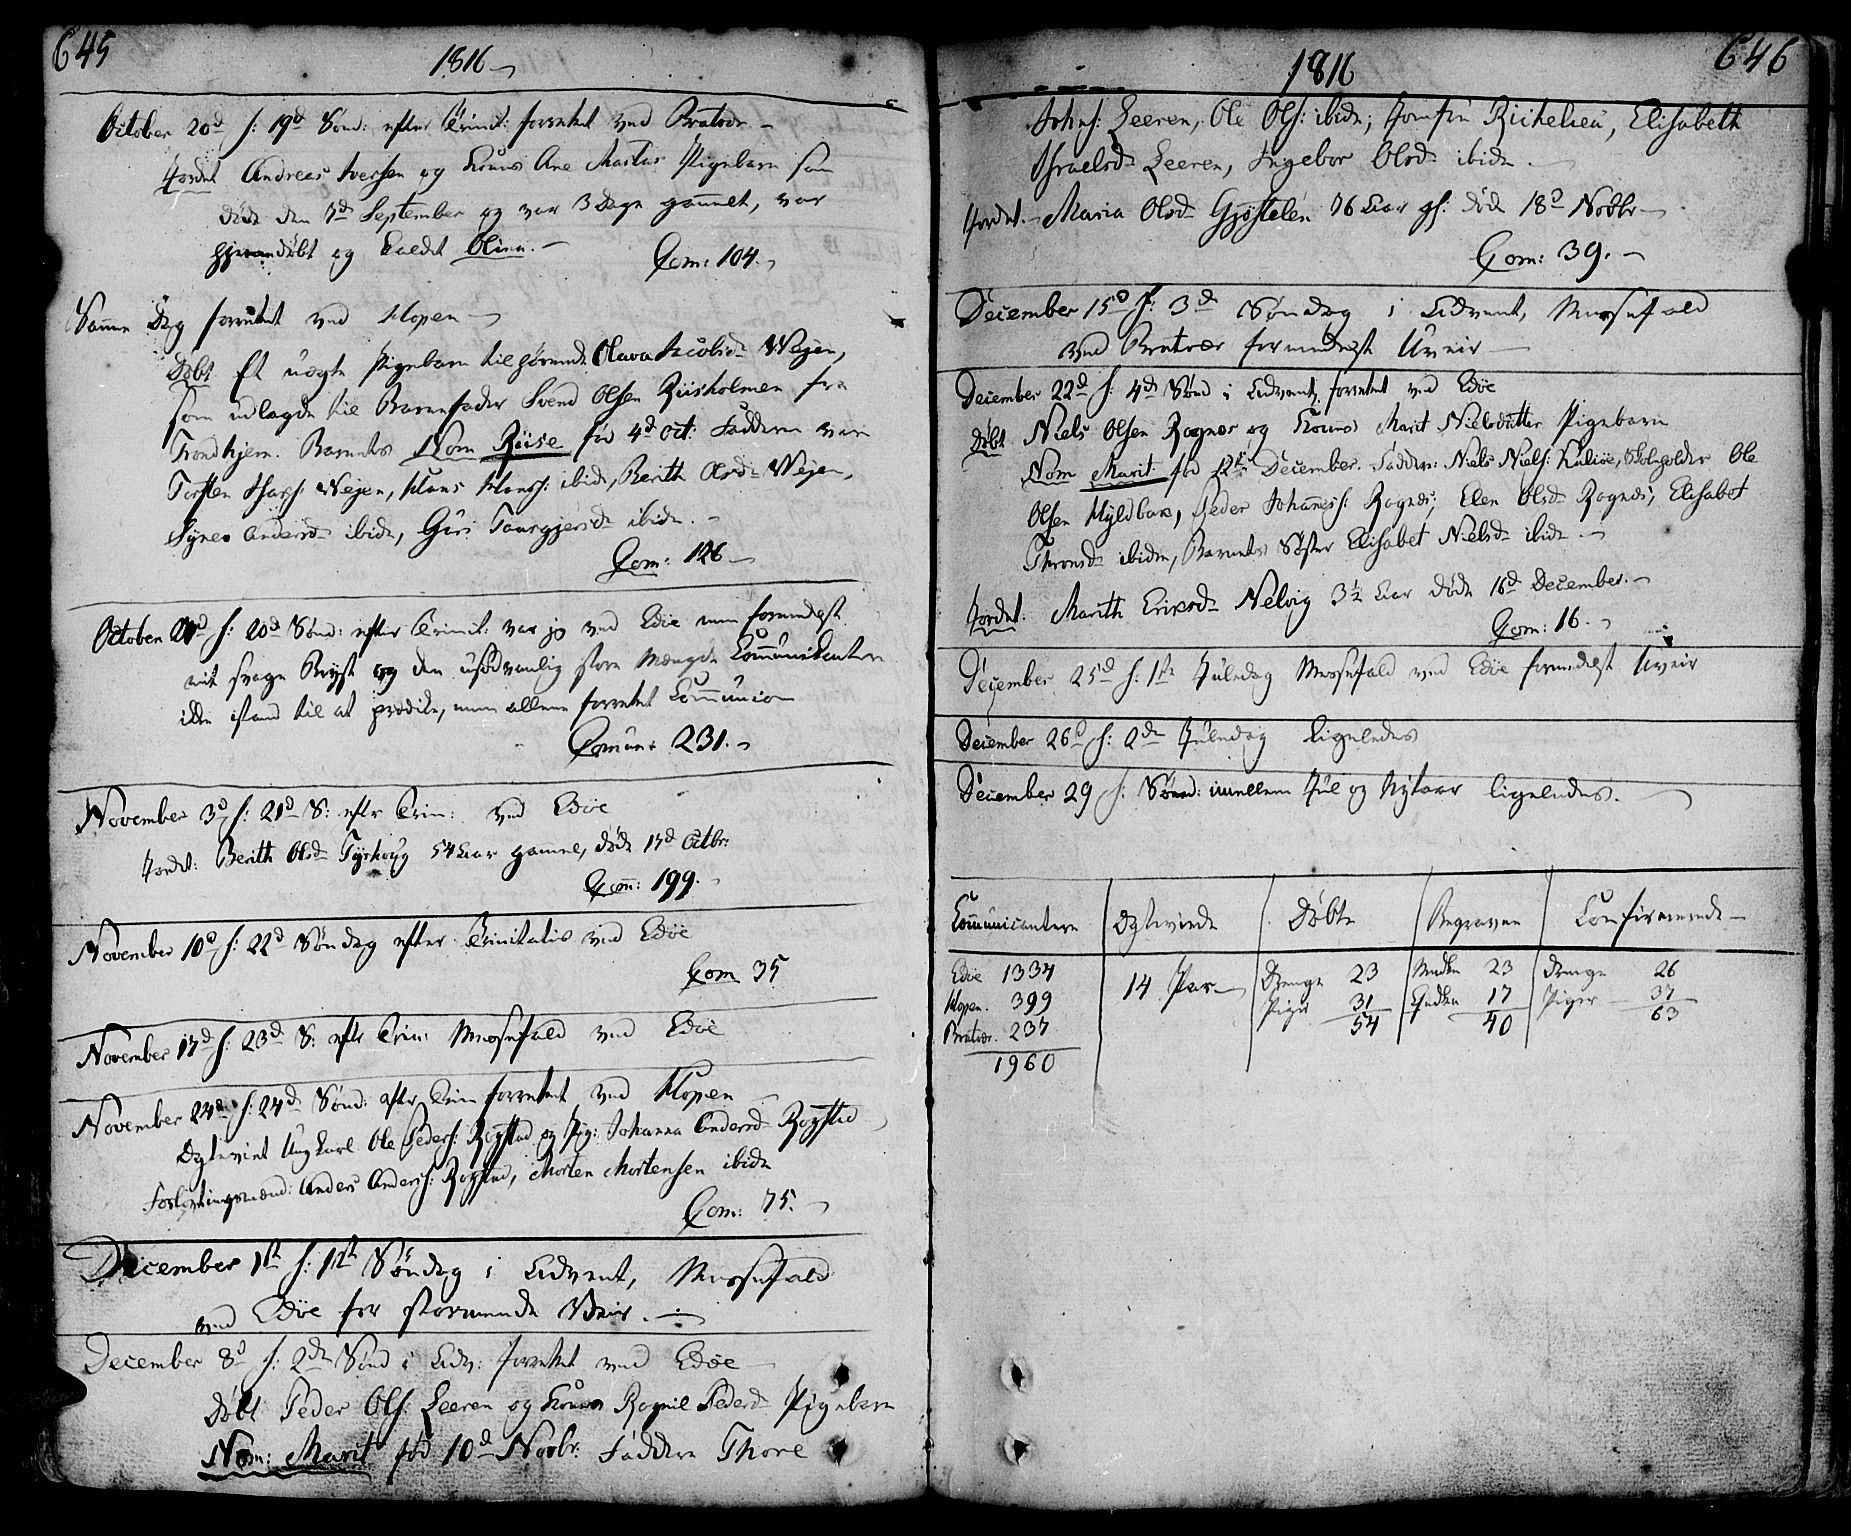 645
1816
October 20d s: 19d Sønd: efter Trinit: forrettet ved Bratvær
Jordet Andreas Iversen og Kones Ane Martas Pigebarn som
døde den 7d September og var 3 Dage gammelt, var
hjemmedøbt og kaldt Olina.
Com: 104.
Samme Dag forrettet ved Hopen
Døbt Et uægte Pigebarn tilhørende Olava Jacobsd Wejen,
som udlagde til Barnefader Svend Olsen Riisholmen fra
Trondhjem. Barnets Nom Riise fød 4d Oct: Faddere var
Torsten Wejen, Hans Hans: ibid, Berith Olsd Wejen,
Synev Andersd ibide, Guri ibide.
Com: 126
October 27d s: 20d Sønd: efter Trinit: var jeg ved Edøe men formedelst
mit svage Bryst og den usædvanlig store Mængde Communikantere
ikke istand til at prædike, men allene forrettet Communion
Comun: 231.
November 3d s: 21d S: eftr Trin: ved Edøe
Jordet: Berith Olsd Tyrhoug 54 Aar gamel, døde 17d Octbr:
Com: 199.
November 10d s: 22d Søndag efter Trinitatis ved Edøe
Com 35
November 17d s: 23d S: eftr Trin: Messefald ved Edøe
November 24d s: 24d Sønd: eftr Trin forrettet ved Hopen
Egteviet Ungkarl Ole Peders: Rogstad og Pig: Johanna Andersd Rogstad
Forlovningsmænd: Anders Anders: Rogstad, Morten Mortensen ibide
Com: 75.
December 1st s: 1ste Søndag i Advent, Messefald
ved Edøe for stormende Veir.
December 8d s: 2de Sønd i Adv: forrettet ved Edøe
Døbt Peder Ols: Leeren og Kones Ragnil Pedersd Pigebarn
Nom: Marit fød 10d Novbr. Faddere Thore
646
1816
Johns: Leeren, Ole Ols: ibide; Jomfru Richelieu, Elisabeth
Israelsd Leeren, Ingebor Olsd ibide.
Jordet. Maria Olsd Gjøstelen 76 Aar gl: død 18d Novbr
Com: 39.
December 15d s: 3de Søndag i Advent, Messefald
ved Bratvær formedelst Uveir
December 22d s: 4de Sønd i Advent forrettet ved Edøe
Døbt Niels Olsen Rognæs og Kones Marit Nielsdatter Pigebarn
Nom Marit fød December. Fadder: Niels Niels: Kulisøe, Skoleholder Ole
Olsen Myldbak, Peder Johanes: Rognæs, Elen Olsd Rognæs, Elisabet
ibiden, Barnets Søster Elisabet Nielsd ibide.
Jordet: Marith Eriksd Nelvig 3½ Aar døde 16d December.
Com: 16.
December 25d s: 1ste Juledag Messefald ved Edøe formedelst Uveir
December 26d s: 2de Juledag ligeledes
December 29 s: Sønd: imellem Jul og Nytaar ligeledes.
Communicantere | Egteviede | Døbte | Begravne | Confirmerede
Edøe 1334 | 14 Par | Drenge 23 | Mandkn 23 | Drenge 26
Hopen. 399 | Piger 31 | Qvdkn 17 | Piger 37
Bratvær. 237 | 54 | 40 | 63
1960